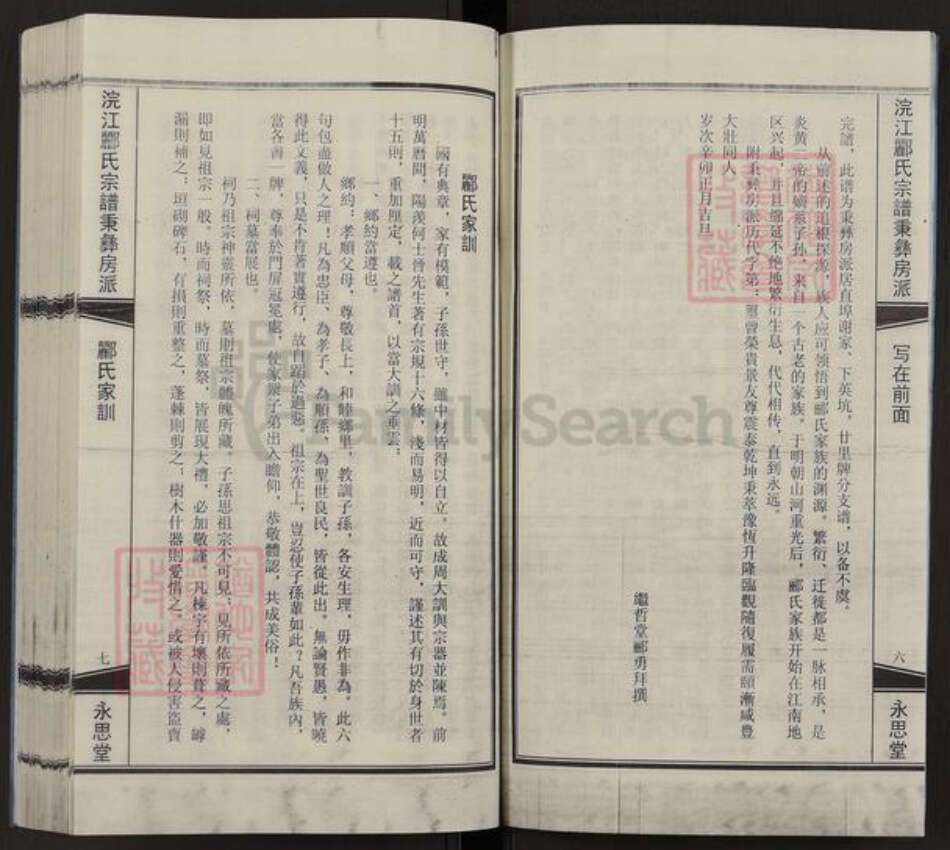 浣江酈氏宗譜秉彝房派
写在前面
六
永思堂
完譜，此谱为秉彝房派居直埠谢家、下英坑，廿里牌分支谱，以备不虞。
从前述的追根探源，族人应可领悟到郦氏家族的渊源。繁衍、迁徙都是一脉相承，是
炎黄二帝的嫡系子孙，来自一个古老的家族，于明朝山河重光后，郦氏家族开始在江南地
区兴起，并且绵延不绝地繁衍生息，代代相传，直到永远。
附秉彝房派历代字第：曾榮貴景友尊震泰乾坤秉萃豫恆升隆臨觀隨復履需頤漸咸豊
大壯同人
岁次辛卯正月吉旦
繼哲堂郦勇拜撰
酈氏家訓
國有典章，家有模範，子孫世守，雖中材皆得以自立。故成周大訓與宗器並陳焉。前
明萬曆間，陽羨何士晉先生著有宗規十六條，淺而易明，近而可守，謹述其有切於身世者
十五則，重加厘定，載之譜首，以當大訓之垂雲：
一、鄉約當遵也。
鄉約：孝順父母，尊敬長上，和睦鄉里，教訓子孫，各安生理，毋作非為。此六
句包盡做人之理！凡為忠臣、為孝子、為順孫、為聖世良民，皆從此出。無論賢愚，皆曉
得此文義，只是不肯著實遵行，故自蹈於過惡。祖宗在上，豈忍使子孫輩如此？凡吾族內，
當各書一牌，尊奉於門屏冠冕處，使家衆子弟出入瞻仰，恭敬體認，共成美俗！
二、祠墓當展也。
祠乃祖宗神靈所依，墓則祖宗體魄所藏。子孫思祖宗不可見，見所依所藏之處，
即如見祖宗一般。時而祠祭，時而墓祭，皆展現大禮，必加敬謹，凡棟宇有壞則葺之，罅
漏則補之；垣砌碑石，有損則重整之，蓬棘則剪之；樹木什器則愛惜之。或被人侵害盜賣
浣江酈氏宗譜秉彝房派
酈氏家訓
七
永思堂
FamilySearch